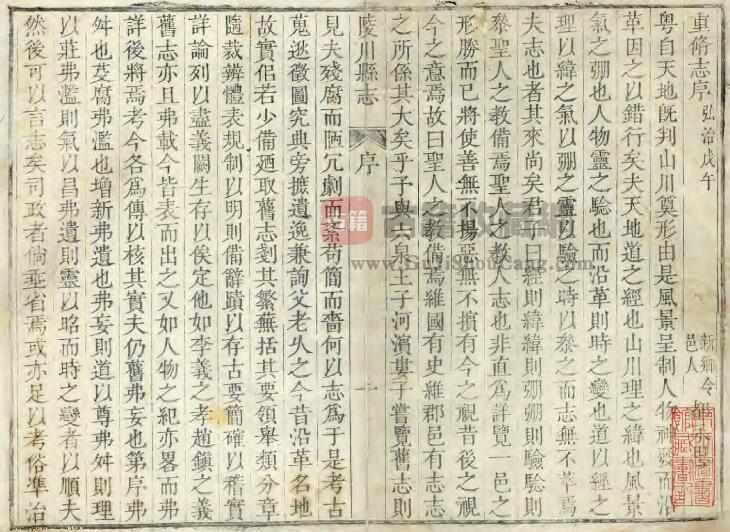 重脩志序
弘治戊午
新鄉令
邑人
粤自天地旣判山川奠形由是風景呈制人物神發而㳂
革因之以錯行矣夫天地道之經也山川理之緯也風景
氣之弸也人物靈之驗也而㳂革則時之變也道以經之
理以緯之氣以弸之靈以驗之時以叅之而志無不萃焉
夫志也者其來尚矣君子曰經則緯緯則弸弸則驗驗則
叅聖人之教備焉聖人之教人志也非直爲詳覽一邑之
形勝而已將使善無不揚惡無不擯有今之視昔後之視
今之意焉故曰聖人之教備焉維國有史維郡邑有志志
之所係其大矣乎予與六泉王子河濱婁子嘗覽舊志則
陵川縣志
序
一
見夫殘腐而陋冗劇而紊茍簡而嗇何以志爲于是考古
蒐逖徵圖究典旁摭遺逸兼詢父老乆之今昔㳂革名地
故實侶若少備廼取舊志剗其繁蕪括其要領舉類分章
隨裁辨體表規制以明則備辭蹟以存古要簡確以稽實
詳論列以盡義闕生存以俟定他如李義之孝趙鎮之義
舊志亦且弗載今皆表而出之又如人物之紀亦畧而弗
詳後將焉考今各爲傳以核其實夫仍舊弗妄也第序弗
舛也芟腐弗濫也增新弗遺也弗妄則道以尊弗舛則理
以莊弗濫則氣以昌弗遺則靈以昭而時之變者以順夫
然後可以言志矣司政者倘垂省焉或亦足以考俗凖治
古籍收藏網
www.GuJiShouCang.com